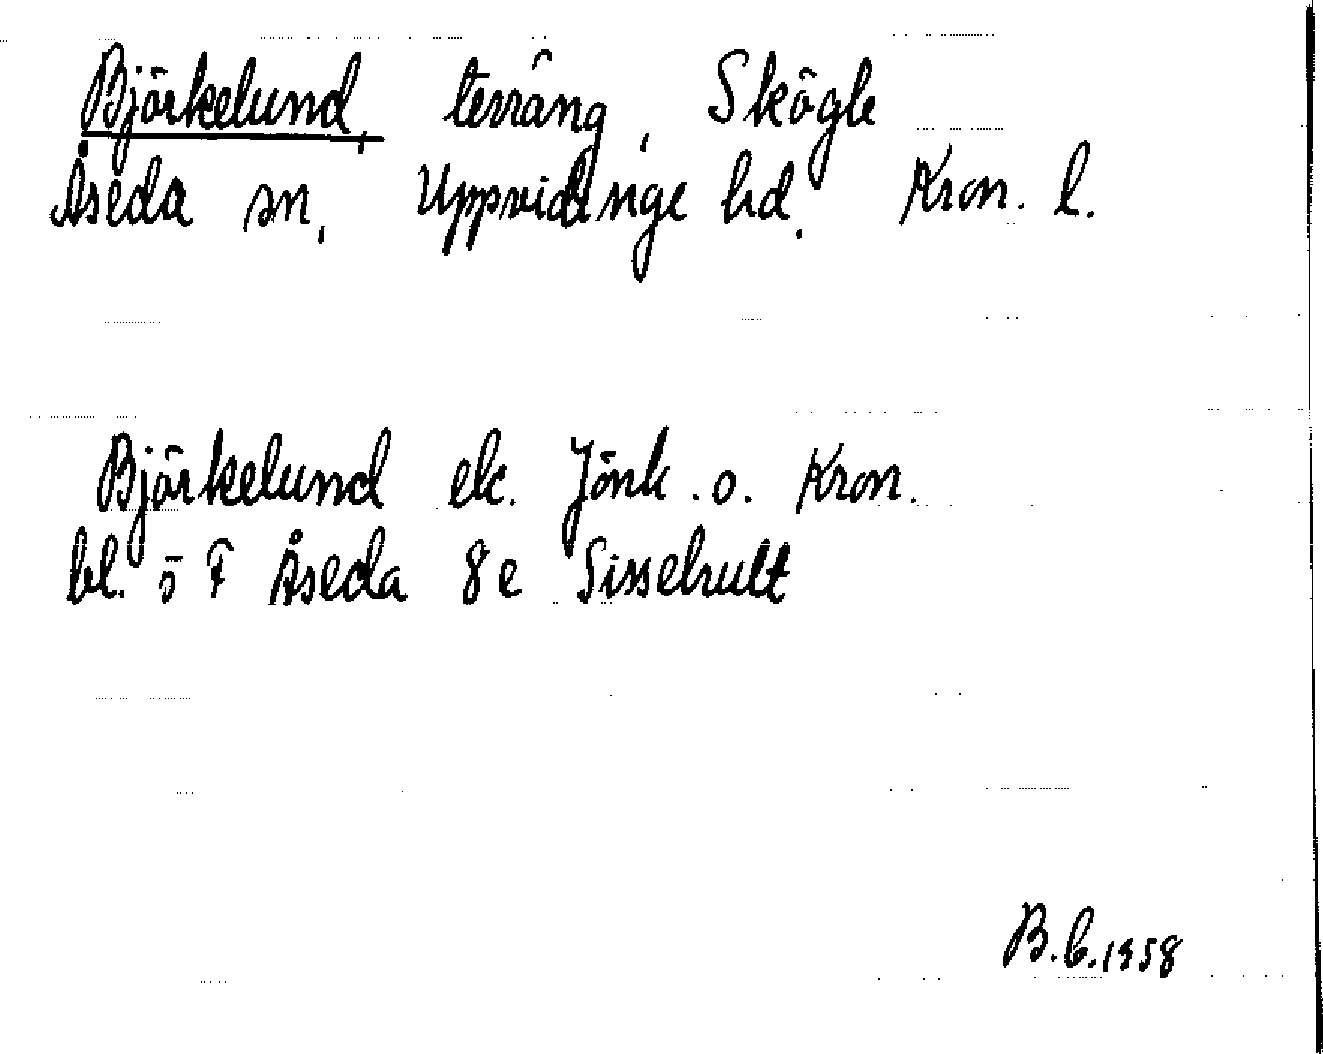 Björkelund, terräng, Skögle
Åseda sn, Uppvidinge hd. Kron. l.
Björkelund ek. Jönk. o. Kron.
bl. ö F Åseda 8e Sisselhult
B.b.1958